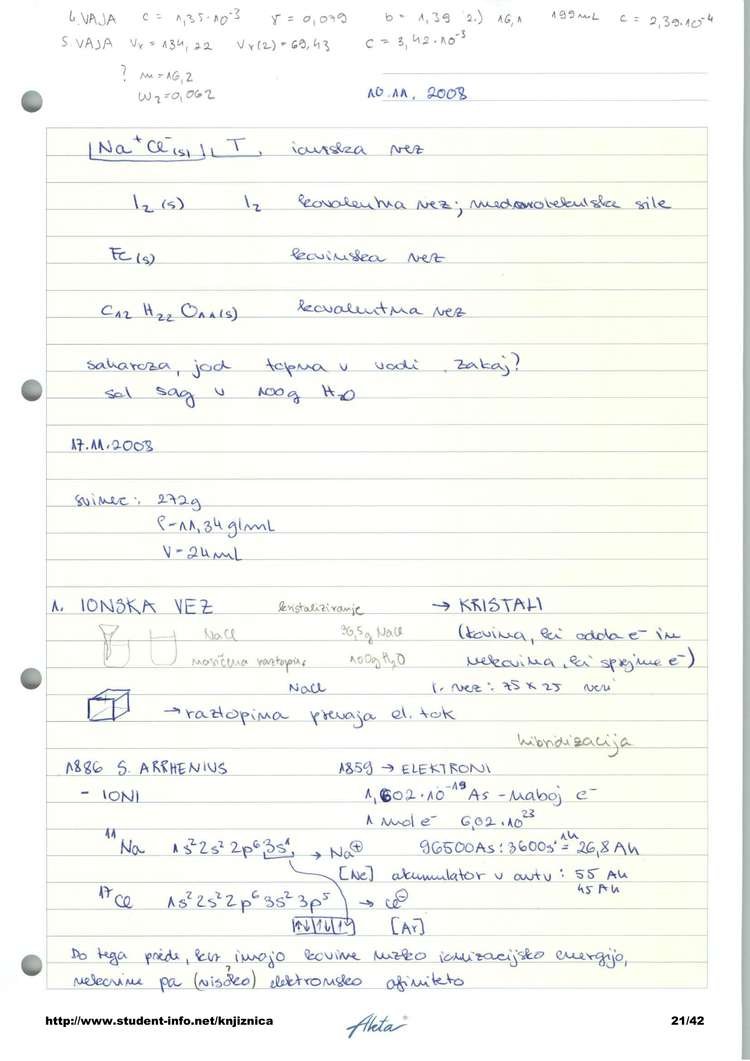 4. VAJA c = 1,35·10⁻³ γ = 0,079 b = 1,39 2.) 16,1 199mL c = 2,39·10⁻⁴
5. VAJA Vr = 134,22 Vr(2) = 69,43 c = 3,42·10⁻³
? m = 16,2
w₂ = 0,062
10.11.2008
Na⁺Cl⁻(s) T ionska vez
I₂ (s) I₂ kovalentna vez; medmolekulske sile
Fe (s) kovinska vez
C₁₂ H₂₂ O₁₁(s) kovalentna vez
saharoza, jod topna v vodi. zakaj?
sol v 100g H₂O
17.11.2008
svinec: 272g
ρ - 11,34 g/mL
V - 24 mL
1. IONSKA VEZ kristaliziranje → KRISTALI
NaCl 36,5g NaCl (kovina, ki odda e⁻ in
nasičena raztopina 100g H₂O nekovina, ki sprejme e⁻)
NaCl 1. vez: 75 × 25
→ raztopina prevaja el. tok
hibridizacija
1886 S. ARRHENIUS 1859 → ELEKTRONI
- IONI 1,602·10⁻¹⁹ As - naboj e⁻
1 mol e⁻ 6,02·10²³
¹¹Na 1s² 2s² 2p⁶ 3s¹ → Na⊕ 96500As : 3600s = 26,8 Ah
1h
[Ne] akumulator v avtu : 55 Ah
45 Ah
¹⁷Cl 1s² 2s² 2p⁶ 3s² 3p⁵ → Cl⊖
[Ar]
Do tega pride, ker imajo kovine nizko ionizacijsko energijo,
nekovine pa (visoko) elektronsko afiniteto
?
http://www.student-info.net/knjiznica Akta 21/42